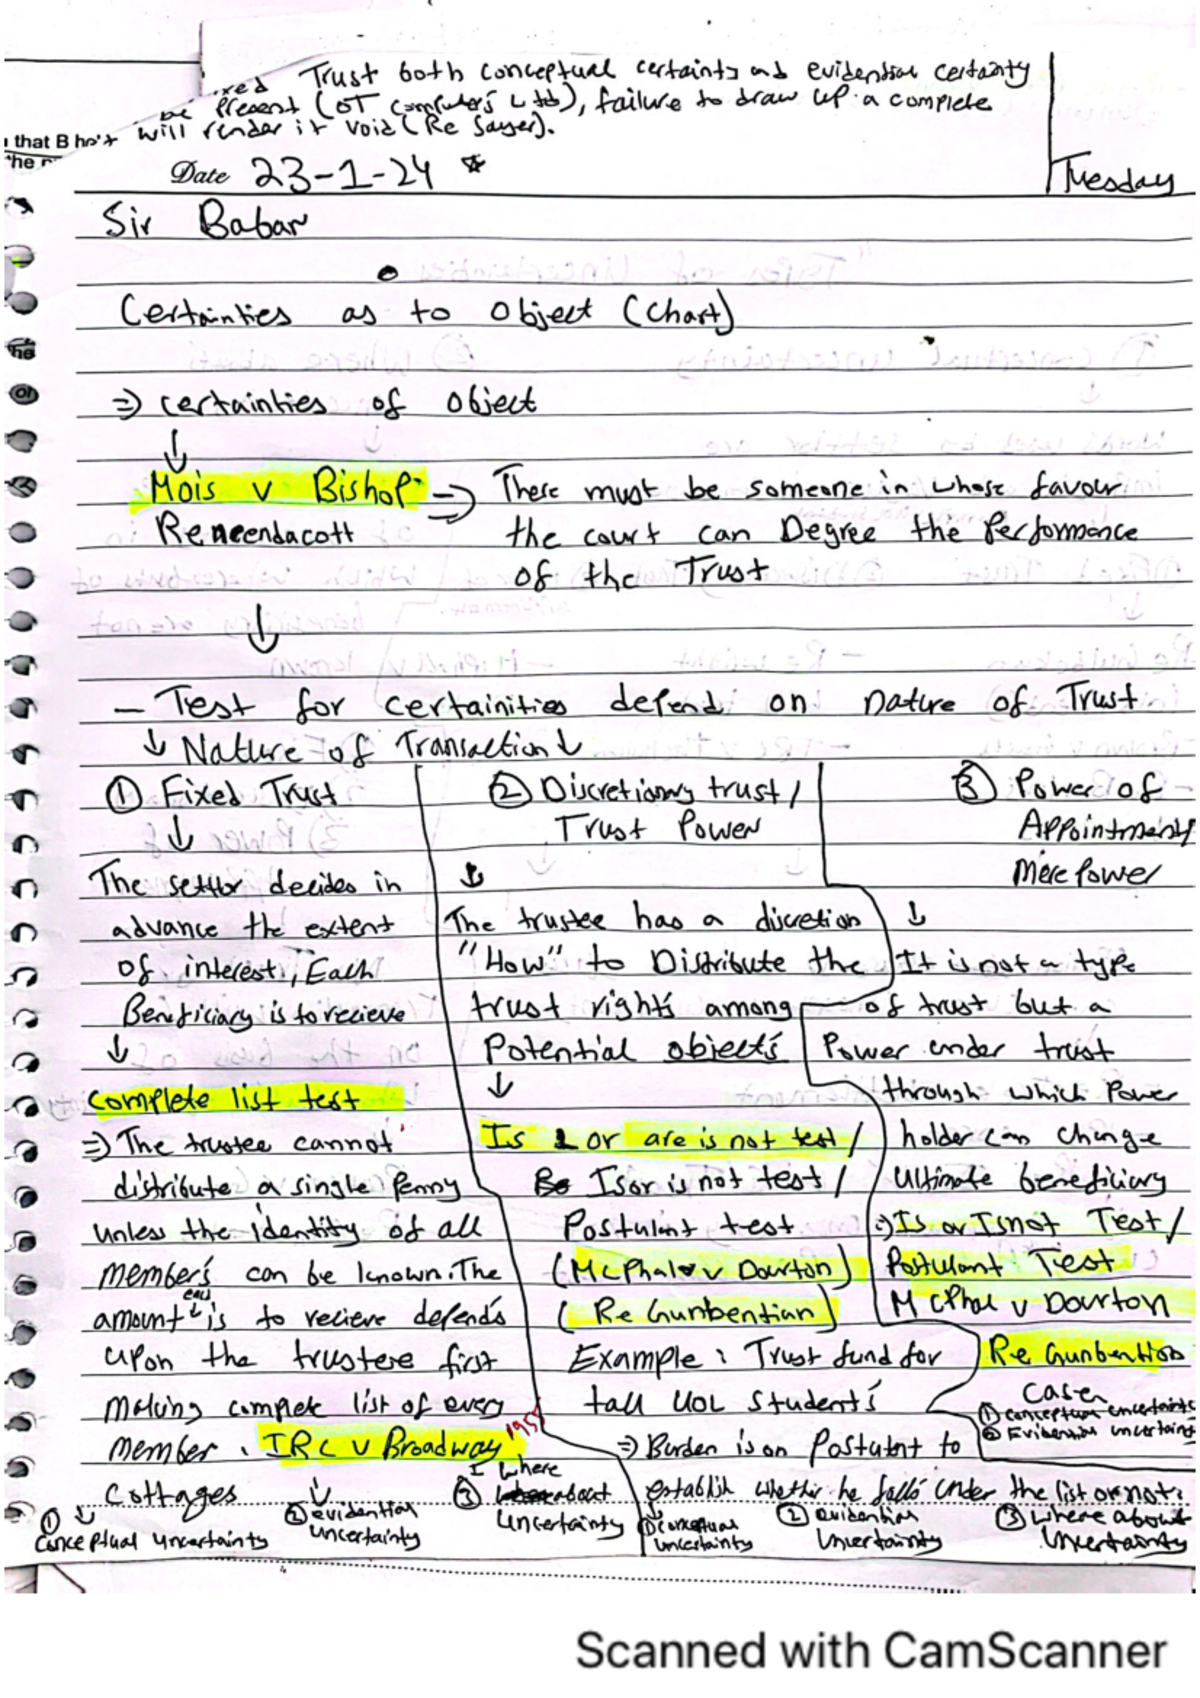 Trust both conceptual certainty and evidential certainty
be present (OT computers Ltd), failure to draw up a complete
will render it void (Re Sayer).
that B
Date 23-1-24
Tuesday
Sir Babar
Certainties as to Object (Chart)
⇒ certainties of object
↓
Mois v Bishop ⇒ There must be someone in whose favour
Re neendacott the court can Degree the Performance
of the Trust
↓
— Test for certainities defend on nature of Trust
↓ Nature of Transaction ↓
① Fixed Trust
↓
The settlor decides in
advance the extent
of interest, Each
Beneficiary is to recieve
↓
Complete list test
⇒ The trustee cannot
distribute a single Penny
unless the identity of all
member's can be known. The
amount each is to recieve defends
upon the trustere first
making complete list of every
member. IRC v Broadway 1955
Cottages
① Conceptual uncertainty
② evidential uncertainty
③ Where about uncertainty
② Discretionary trust /
Trust Power
↓
The trustee has a discretion
"How" to Distribute the
trust rights among
Potential object's
↓
Is or are is not test /
Is or is not test /
Postulnt test
(McPhal v Dourton)
(Re Gunbentian)
Example: Trust fund for
tall UOL Student's
⇒ Burden is on Postulent to
establish whether he falls under the list or not:
① conceptual uncertainty
② evidential uncertainty
③ Where about uncertainty
③ Power of
Appointment/
Mere Power
↓
It is not a type
of trust but a
Power under trust
through which Power
holder can change
ultimate beneficiary
⇒ Is or Isnot Test /
Postulant Test
McPhal v Dourton
Re Gunbention
Case
① Conceptual uncertainty
② Evidential uncertainty
Scanned with CamScanner